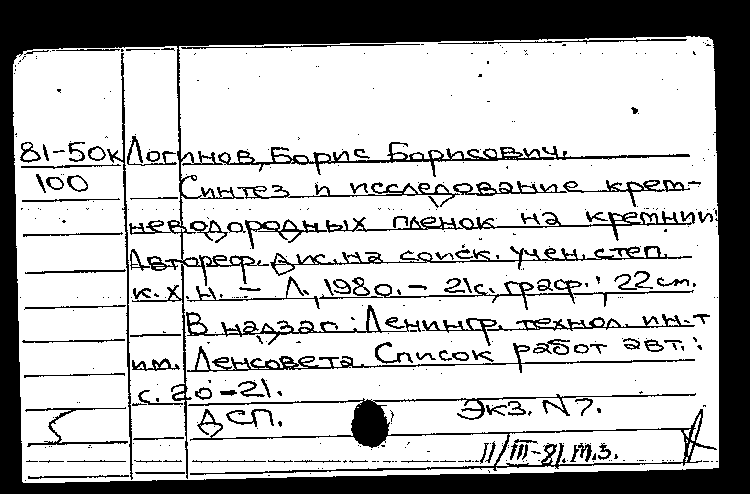 81-50к Логинов, Борис Борисович.
100 Синтез и исследование крем-
неводородных пленок на кремнии:
Автореф. дис. на соиск. учен. степ.
к. х. н. - Л., 1980. - 21с, граф.; 22 см.
В надзаг: Ленингр. технол. ин-т
им. Ленсовета. Список работ авт.:
с. 20-21.
ДСП. Экз. N7.
11/III-81. т.з.